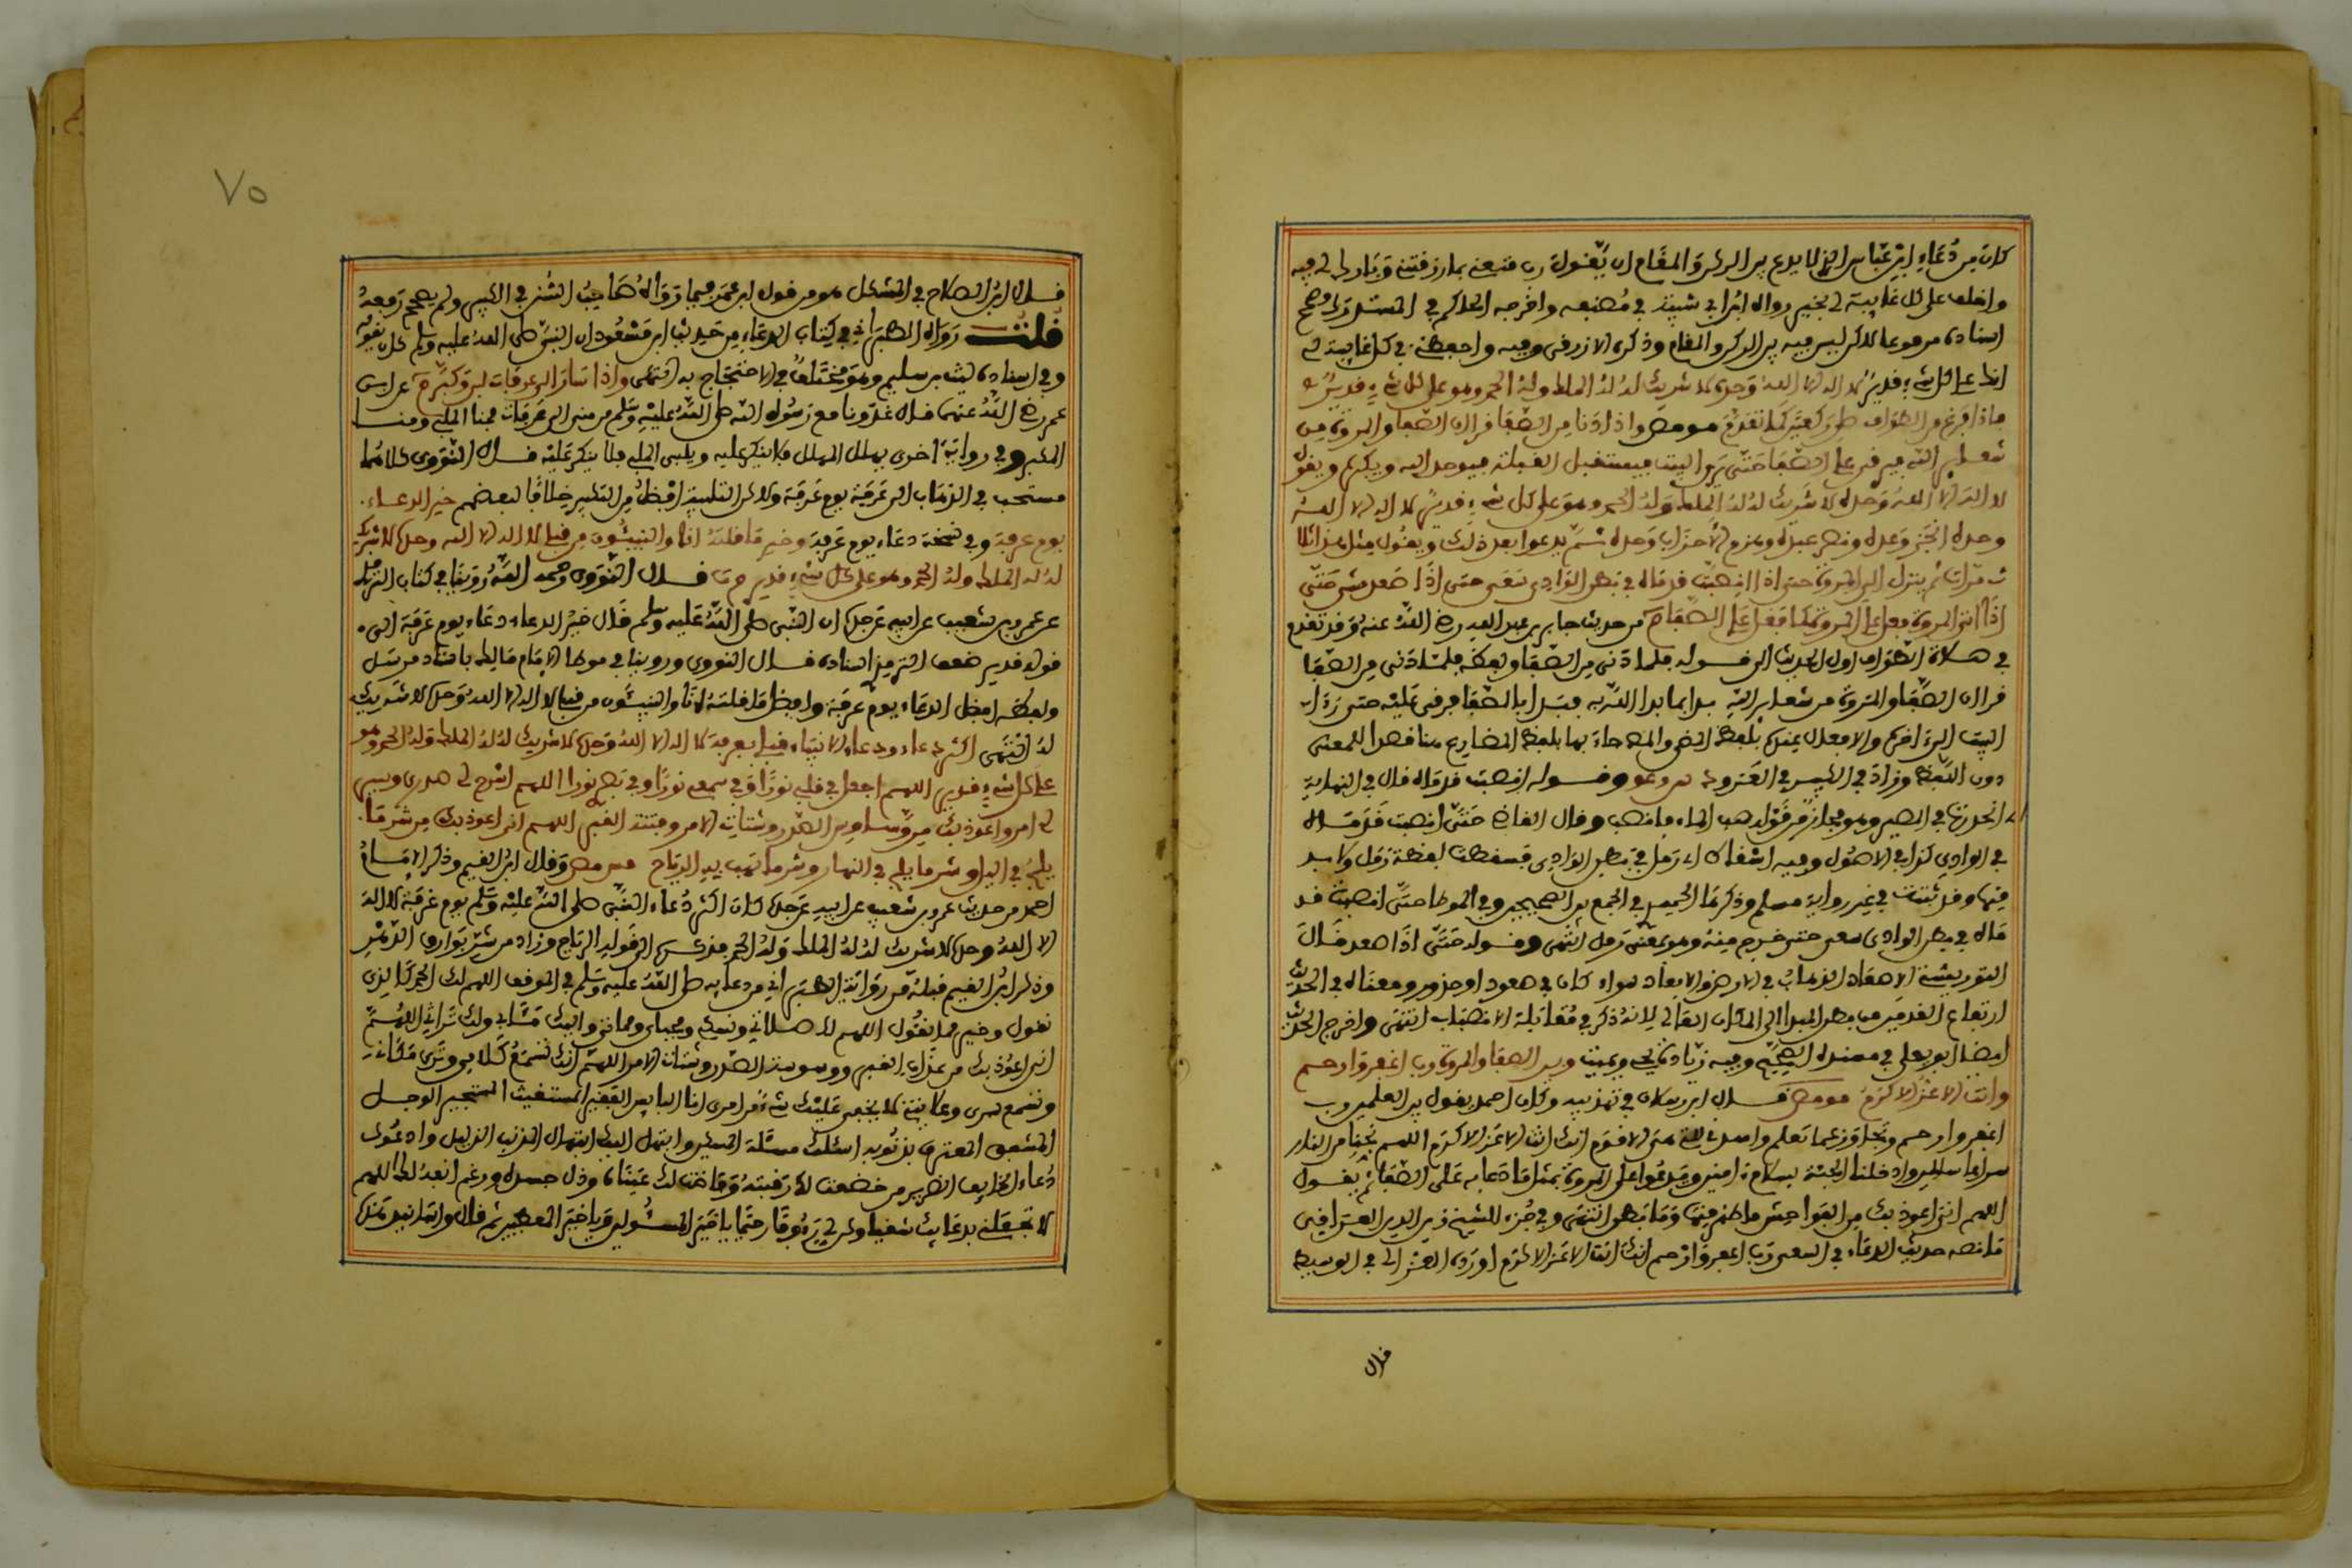 كان من دعاء ابن عباس الذي لا يدع بين الركن والمقام ان يقول رب قنعني بما رزقتني وبارك لي فيه
واخلف على كل غايبة لي بخير رواه ابن ابي شيبة في مصنفه واخرجه الحاكم في المستدرك وصحح
اسناده مرفوعا لاكن ليس فيه بين الركن والمقام وذكره الازرقي وفيه واحفظني في كل غايبة لي
انك على كل شيء قدير لا اله الا الله وحده لا شريك له له الملك وله الحمد وهو على كل شيء قدير
فاذا فرغ من الطواف صلى ركعتين كما تقدم مو مص واذا دنا من الصفا قرا ان الصفا والمروة من
شعاير الله فيرقى على الصفا حتى يرى البيت فيستقبل القبلة فيوحد الله ويكبره ويقول
لا اله الا الله وحده لا شريك له له الملك وله الحمد وهو على كل شيء قدير لا اله الا الله
وحده انجز وعده ونصر عبده وهزم الاحزاب وحده ثم يدعوا بعد ذلك ويقول مثل هذا ثلا
ث مرات ثم ينزل الى المروة حتى اذا انصبت قدماه في بطن الوادي سعى حتى اذا صعد مشى حتى
اذا اتى المروة فعل على المروة كما فعل على الصفا م من حديث جابر بن عبد الله رضي الله عنه وقد تقدم
في صلاة الطواف اول الحديث الى قوله فلما دنى من الصفا ولفظه فلما دنى من الصفا
قرا ان الصفا والمروة من شعاير الله بدا بما بدا الله به فبدا بالصفا فرقى عليه حتى رءا
البيت الى ءاخره والافعال
دون اللفظ وزاد في وقوله انصبت قدماه قال في النهاية
اي انحدرتا في المسير وهو مجاز من قولهم صب الماء فانصب وقال القاضي حتى انصبت قدماه
في الوادي كذا في الاصول وفيه اسقاط اي رمل في بطن الوادي فسقطت لفظة رمل ولا بد
منها وقد ثبتت في غير رواية مسلم وذكرها الحميدي في الجمع بين الصحيحين وفي الموطا حتى انصبت قد
ماه في بطن الوادي سعى حتى خرج منه وهو بمعنى رمل انتهى وقوله حتى اذا صعد قال
التوربشتي الاصعاد الذهاب في الارض والابعاد سواء كان في صعود او حدور ومعناه في الحديث
ارتفاع القدمين من بطن المسيل الى المكان العالي لانه ذكر في مقابلة الانصباب انتهى واخرج الحديث
ايضا ابو يعلى في مسنده الصحيح وفيه زيادة يحي ويميت وبين الصفا والمروة رب اغفر وارحم
وانت الاعز الاكرم مو مص قال ابن رسلان في تهذيبه وكان احمد يقول بين العلمين رب
اغفر وارحم وتجاوز عما تعلم واهدني للتي هي الاقوم انك انت الاعز الاكرم اللهم نجنا من النار
سراعا سالمين وادخلنا الجنة بسلام ءامنين ويدعوا على المروة بمثل ما دعا به على الصفا ثم يقول
اللهم اني اعوذ بك من الفواحش ما ظهر منها وما بطن انتهى وفي جزء للشيخ زين الدين العراقي
ما نصه حديث الدعاء في السعي رب اغفر وارحم انك انت الاعز الاكرم اورده الغزالي في الوسيط
قال
٧٥
قال ابن الصلاح في المشكل هو من قول ابن عمر فيما رواه صاحب السنن في الكبير ولم يصحح رفعه
قلت رواه الطبراني في كتاب الدعاء من حديث ابن مسعود ان النبي صلى الله عليه وسلم كان يقوله
وفي اسناده ليث بن سليم وهو مختلف في الاحتجاج به انتهى واذا سار الى عرفات لبى وكبر م عن ابن
عمر رضي الله عنهما قال غدونا مع رسول الله صلى الله عليه وسلم من منى الى عرفات فمنا الملبي ومنا
المكبر وفي رواية اخرى يهلل المهلل فلا ينكر عليه ويلبي الملبي فلا ينكر عليه قال النووي كلاهما
مستحب في الذهاب الى عرفة يوم عرفة ولاكن التلبية افضل من التكبير خلافا لبعضهم خير الدعاء
يوم عرفة وفي نسخة دعاء يوم عرفة وخير ما قلته انا والنبيئون من قبلي لا اله الا الله وحده لا شريك
له له الملك وله الحمد وهو على كل شيء قدير م ت قال النووي رحمه الله روينا في كتاب الترمذي
عن عمرو بن شعيب عن ابيه عن جده ان النبي صلى الله عليه وسلم قال خير الدعاء دعاء يوم عرفة الى
قوله قدير ضعف الترمذي اسناده قال النووي وروينا في موطا الامام مالك باسناد مرسل
ولفظه افضل الدعاء يوم عرفة وافضل ما قلته انا والنبيئون من قبلي لا اله الا الله وحده لا شريك
له انتهى اكثر دعاءي ودعاء الانبياء قبلي بعرفة لا اله الا الله وحده لا شريك له له الملك وله الحمد وهو
على كل شيء قدير اللهم اجعل في قلبي نورا وفي سمعي نورا وفي بصري نورا اللهم اشرح لي صدري ويسر
لي امري واعوذ بك من وسواس الصدر وشتات الامر وفتنة القبر اللهم اني اعوذ بك من شر ما
يلج في اليل وشر ما يلج في النهار وشر ما تهب به الرياح مص وقال ابن القيم وذكر الامام
احمد من حديث عمرو بن شعيب عن ابيه عن جده كان اكثر دعاء النبي صلى الله عليه وسلم يوم عرفة لا اله
الا الله وحده لا شريك له له الملك وله الحمد فذكره الى قوله الرياح وزاد من شر بوايق الدهر
وذكر ابن القيم قبله من رواية الطبراني من دعايه صلى الله عليه وسلم في الموقف اللهم لك الحمد كالذي
نقول وخير مما نقول اللهم لك صلاتي ونسكي ومحياي ومماتي واليك مئابي ولك تراثي اللهم
اني اعوذ بك من عذاب القبر ووسوسة الصدر وشتات الامر اللهم انك تسمع كلامي وترى مكاني
وتسمع سري وعلانيتي لا يخفى عليك شيء من امري انا البايس الفقير المستغيث المستجير الوجل
المشفق المعترف بذنوبه اسئلك مسئلة المسكين وابتهل اليك ابتهال المذنب الذليل وادعوك
دعاء الخايف الضرير من خضعت لك رقبته وفاضت لك عيناه وذل جسده ورغم انفه لك اللهم
لا تجعلني بدعايك شقيا وكن لي رءوفا رحيما يا خير المسئولين ويا خير المعطين ثم قال